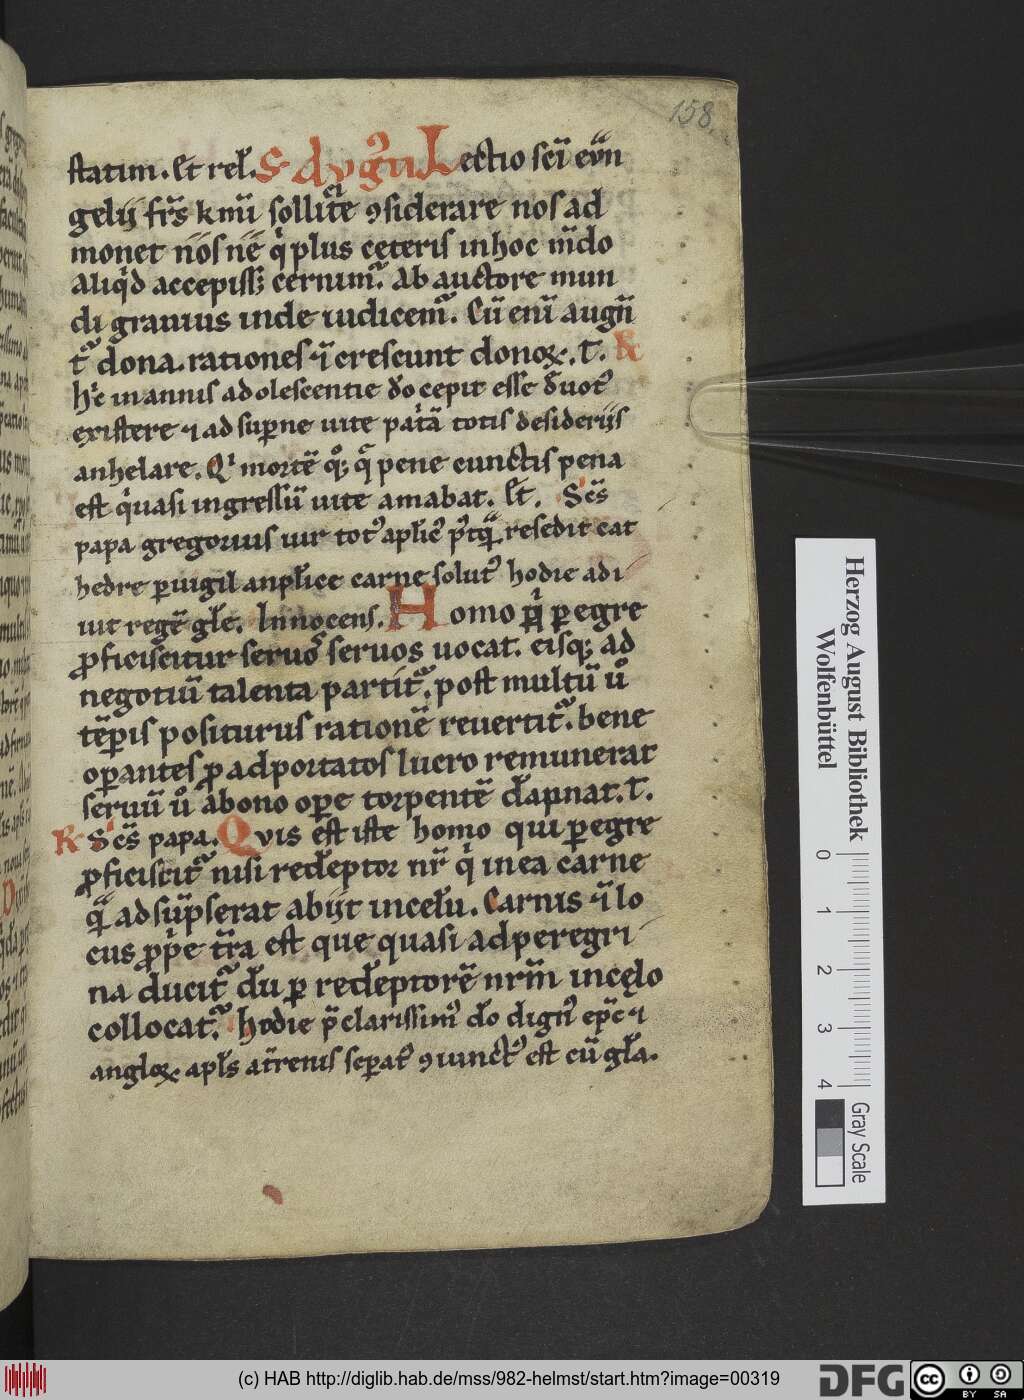 158
statim. Et rel̄. S Augū Lectio sc̄i eūn
gelij fr̄s kmī sollitͣe ꝯsiderare nos ad
monet ne nos qͥ plus ceteris in hoc mͫdo
aliqͥd accepissꝫ cernimͬ. ab auctore mun
di grauius inde iudicemͬ. Cū enī augn̄
tͬ dona. rationes ⁊̄ crescunt donoꝝ. T. R
Hͥc in annis adolescentie dō cepit esse deuotꝰ
existere ⁊ ad superne uite patͥā totis desiderijs
anhelare. Qi mortē qꝫ q̄ pene cunctis pena
est qͥuasi ingressū uite amabat. Et. Sc̄s
papa gregorius uir totꝰ apl̄icꝰ pͥꝰtqͣ̄ resedit cat
hedre ꝑuigil anpl̄ice carne solutꝰ hodie adi
uit regē gl̄e. Innocens. Homo qͥ ꝑegre
ꝓficiscitur seruos seruos uocat. eisqꝫ ad
negotiū talenta partitͬ. post multū uͦ
tēꝑis positurus rationē reuertitͬ. bene
oꝑantes ꝓ adportatos lucro remunerat
seruū uͦ a bono oꝑe torpentē dāpnat. T.
R Sc̄s papa. Qvis est iste homo qui ꝑegre
ꝓficiscitͬ nisi redeptor nr̄ qͥ in ea carne
qͣ̄ adsūpserat abijt in celū. Carnis ⁊̄ lo
cus ꝓpͥe tr̄a est que quasi ad peregri
na ducitͬ dū ꝑ redēptorē nrm̄ in celo
collocatͬ. Hodie p̄clarissimꝰ dō dignꝰ ep̄c ⁊
angloꝝ apl̄s at̄renis seꝑatꝰ ꝯiunctꝰ est cū gl̄a.
Herzog August Bibliothek
Wolfenbüttel
0 1 2 3 4
Gray Scale
(c) HAB http://diglib.hab.de/mss/982-helmst/start.htm?image=00319
DFG
cc BY SA